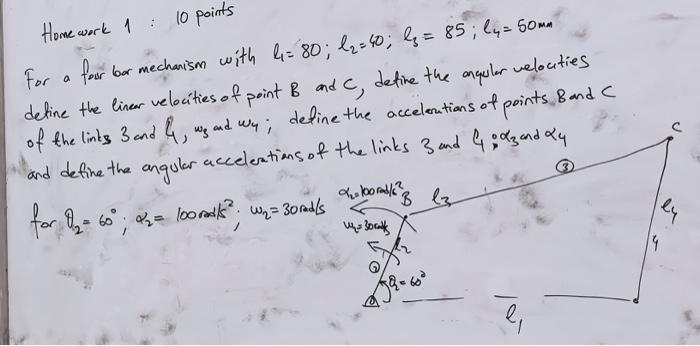 Home work 1 : 10 points
For a four bar mechanism with l₁= 80; l₂=40; l₃= 85; l₄= 50mm
define the linear velocities of point B and C, define the angular velocities
of the links 3 and 4, ω₃ and ω₄; define the accelerations of points B and C
and define the angular accelerations of the links 3 and 4: α₃ and α₄
for θ₂= 60°; α₂= 100 rad/s²; ω₂= 30 rad/s
α₂=100 rad/s²
B
l₃
③
C
ω₂=30 rad/s
l₂
②
θ₂= 60°
l₄
4
l₁